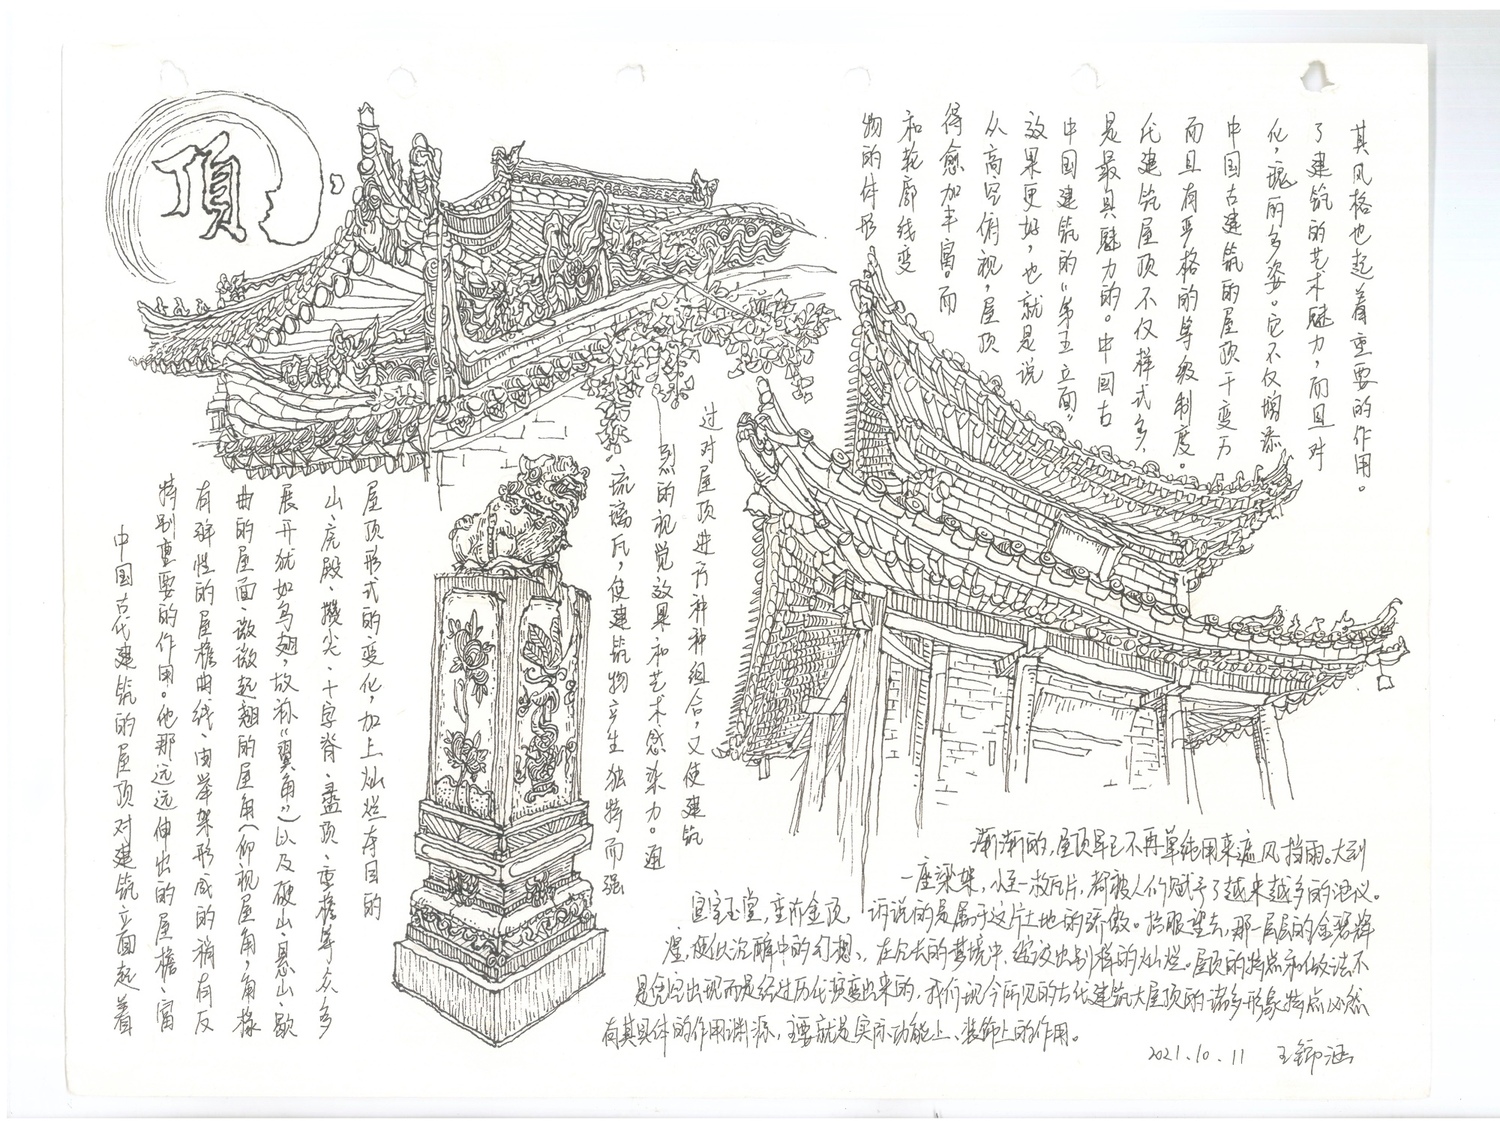 頂
中国古代建筑的屋顶对建筑立面起着
特别重要的作用。他那远远伸出的屋檐、富
有弹性的屋檐曲线、由举架形成的稍有反
曲的屋面、微微起翘的屋角(仰视屋角,角椽
展开犹如鸟翅,故称“翼角”)以及硬山、悬山、歇
山、庑殿、攒尖、十字脊、盝顶、重檐等众多
屋顶形式的变化,加上灿烂夺目的
琉璃瓦,使建筑物产生独特而强
烈的视觉效果和艺术感染力。通
过对屋顶进行种种组合,又使建筑
物的体形
和轮廓线变
得愈加丰富。而
从高空俯视,屋顶
效果更好,也就是说
中国建筑的“第五立面”
是最具魅力的。中国古
代建筑屋顶不仅样式多,
而且有严格的等级制度。
中国古建筑的屋顶千变万
化,瑰丽多姿。它不仅增添
了建筑的艺术魅力,而且对
其风格也起着重要的作用。
渐渐的,屋顶早已不再单纯用来遮风挡雨。大到
一座梁架,小至一枚瓦片,都被人们赋予了越来越多的涵义。
宣室玉堂,重阶金顶,诉说的是属于这片土地的骄傲。抬眼望去,那一层层的金碧辉
煌,便似沉醉中的幻想、在冗长的梦境中,绽放出别样的灿烂。屋顶的特点和做法,不
是凭空出现而是经过历代演变出来的,我们现今所见的古代建筑大屋顶的诸多形象特点必然
有其具体的作用渊源,主要就是实际功能上、装饰上的作用。
2021.10.11 王锦涵